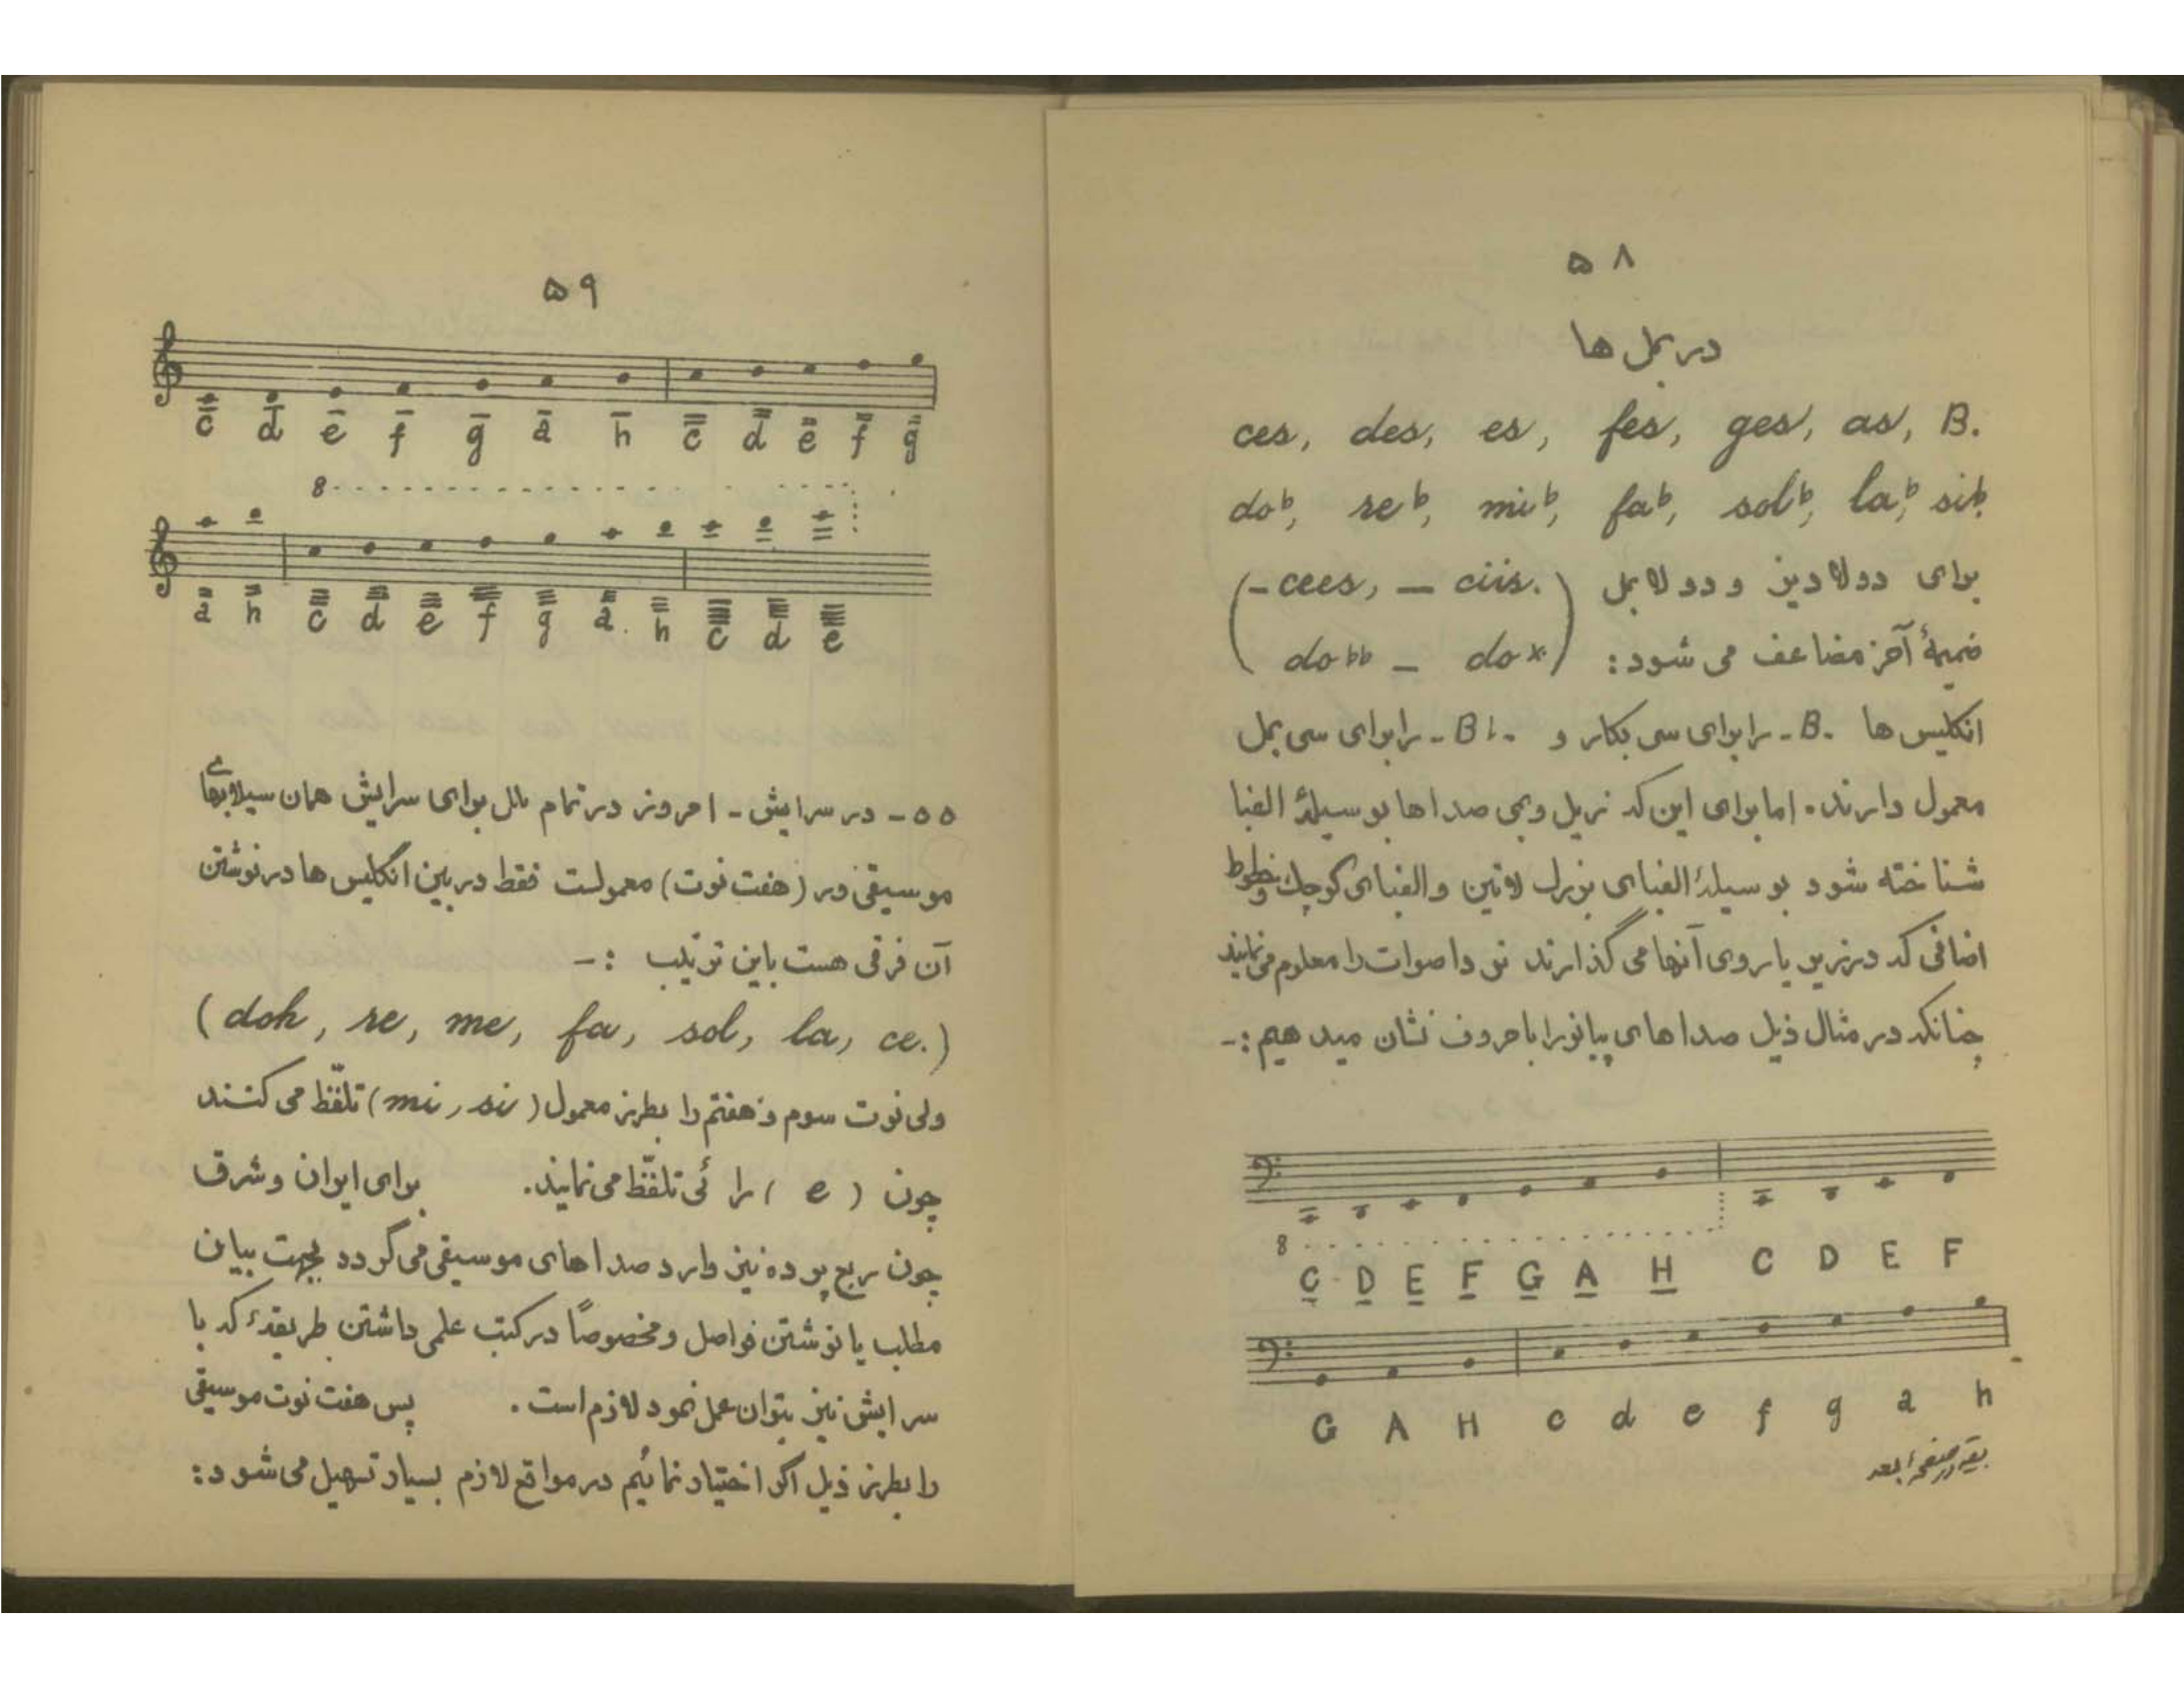 ۵۸
در بمل ها
ces, des, es, fes, ges, as, B.
do♭, re♭, mi♭, fa♭, sol♭, la♭, si♭.
برای دولادیز و دولابمل (-cees, — ciis.
ضمیمهٔ آخر مضاعف می شود: do♭♭ — do×.)
انگلیس ها -B- را برای سی بکار و -B♭- را برای سی بمل
معمول دارند. اما برای این که زیل و بمی صداها بوسیلهٔ الفبا
شناخته شود بوسیلهٔ الفبای بزرگ لاتین و الفبای کوچک و خطوط
اضافی که در زیر یا روی آنها می گذارند نوع اصوات را معلوم می نمایند
چنانکه در مثال ذیل صداهای پیانو را با حروف نشان میدهیم :-
8
C̲ D̲ E̲ F̲ G̲ A̲ H̲ C D E F
G A H c d e f g a h
بقیه در صفحهٔ بعد
۵۹
c̄ d̄ ē f̄ ḡ ā h̄ c̿ d̿ e̿ f̿ g̿
8
a̿ h̿ c d e f g a h c d e
۵۵- در سرایش - امروز در تمام ملل برای سرایش همان سیلابهای
موسیقی در (هفت نوت) معمولست فقط در بین انگلیس ها در نوشتن
آن فرقی هست باین ترتیب :-
(doh, re, me, fa, sol, la, ce.)
ولی نوت سوم و هفتم را بطرز معمول (mi, si) تلفّظ می کنند
چون ( e ) را ئی تلفّظ می نمایند. برای ایران و شرق
چون ربع پرده نیز وارد صداهای موسیقی می گردد بجهت بیان
مطلب یا نوشتن فواصل و مخصوصاً در کتب علمی داشتن طریقهٔ که با
سرایش نیز بتوان عمل نمود لازم است. پس هفت نوت موسیقی
را بطرز ذیل اگر اختیار نمائیم در مواقع لازم بسیار تسهیل می شود: